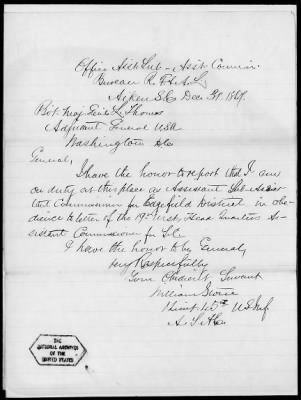 Office Asst Sub-Asst Commr.
Bureau R. F. & A. L.
Aiken S.C. Dec 31. 1867.
Bvt. Maj. Gen'l L. Thomas
Adjutant General USA
Washington DC
General,
I have the honor to report that I am
on duty at this place as Assistant Sub-Assis
tant Commissioner for Edgefield District in obe
dience to letter of the 19th inst, Head Quarters As-
sistant Commissioner for S.C.
I have the honor to be General,
Very Respectfully
Your Obedient Servant
William Stone
Lieut 45th US Inf
THE
NATIONAL ARCHIVES
OF THE
UNITED STATES